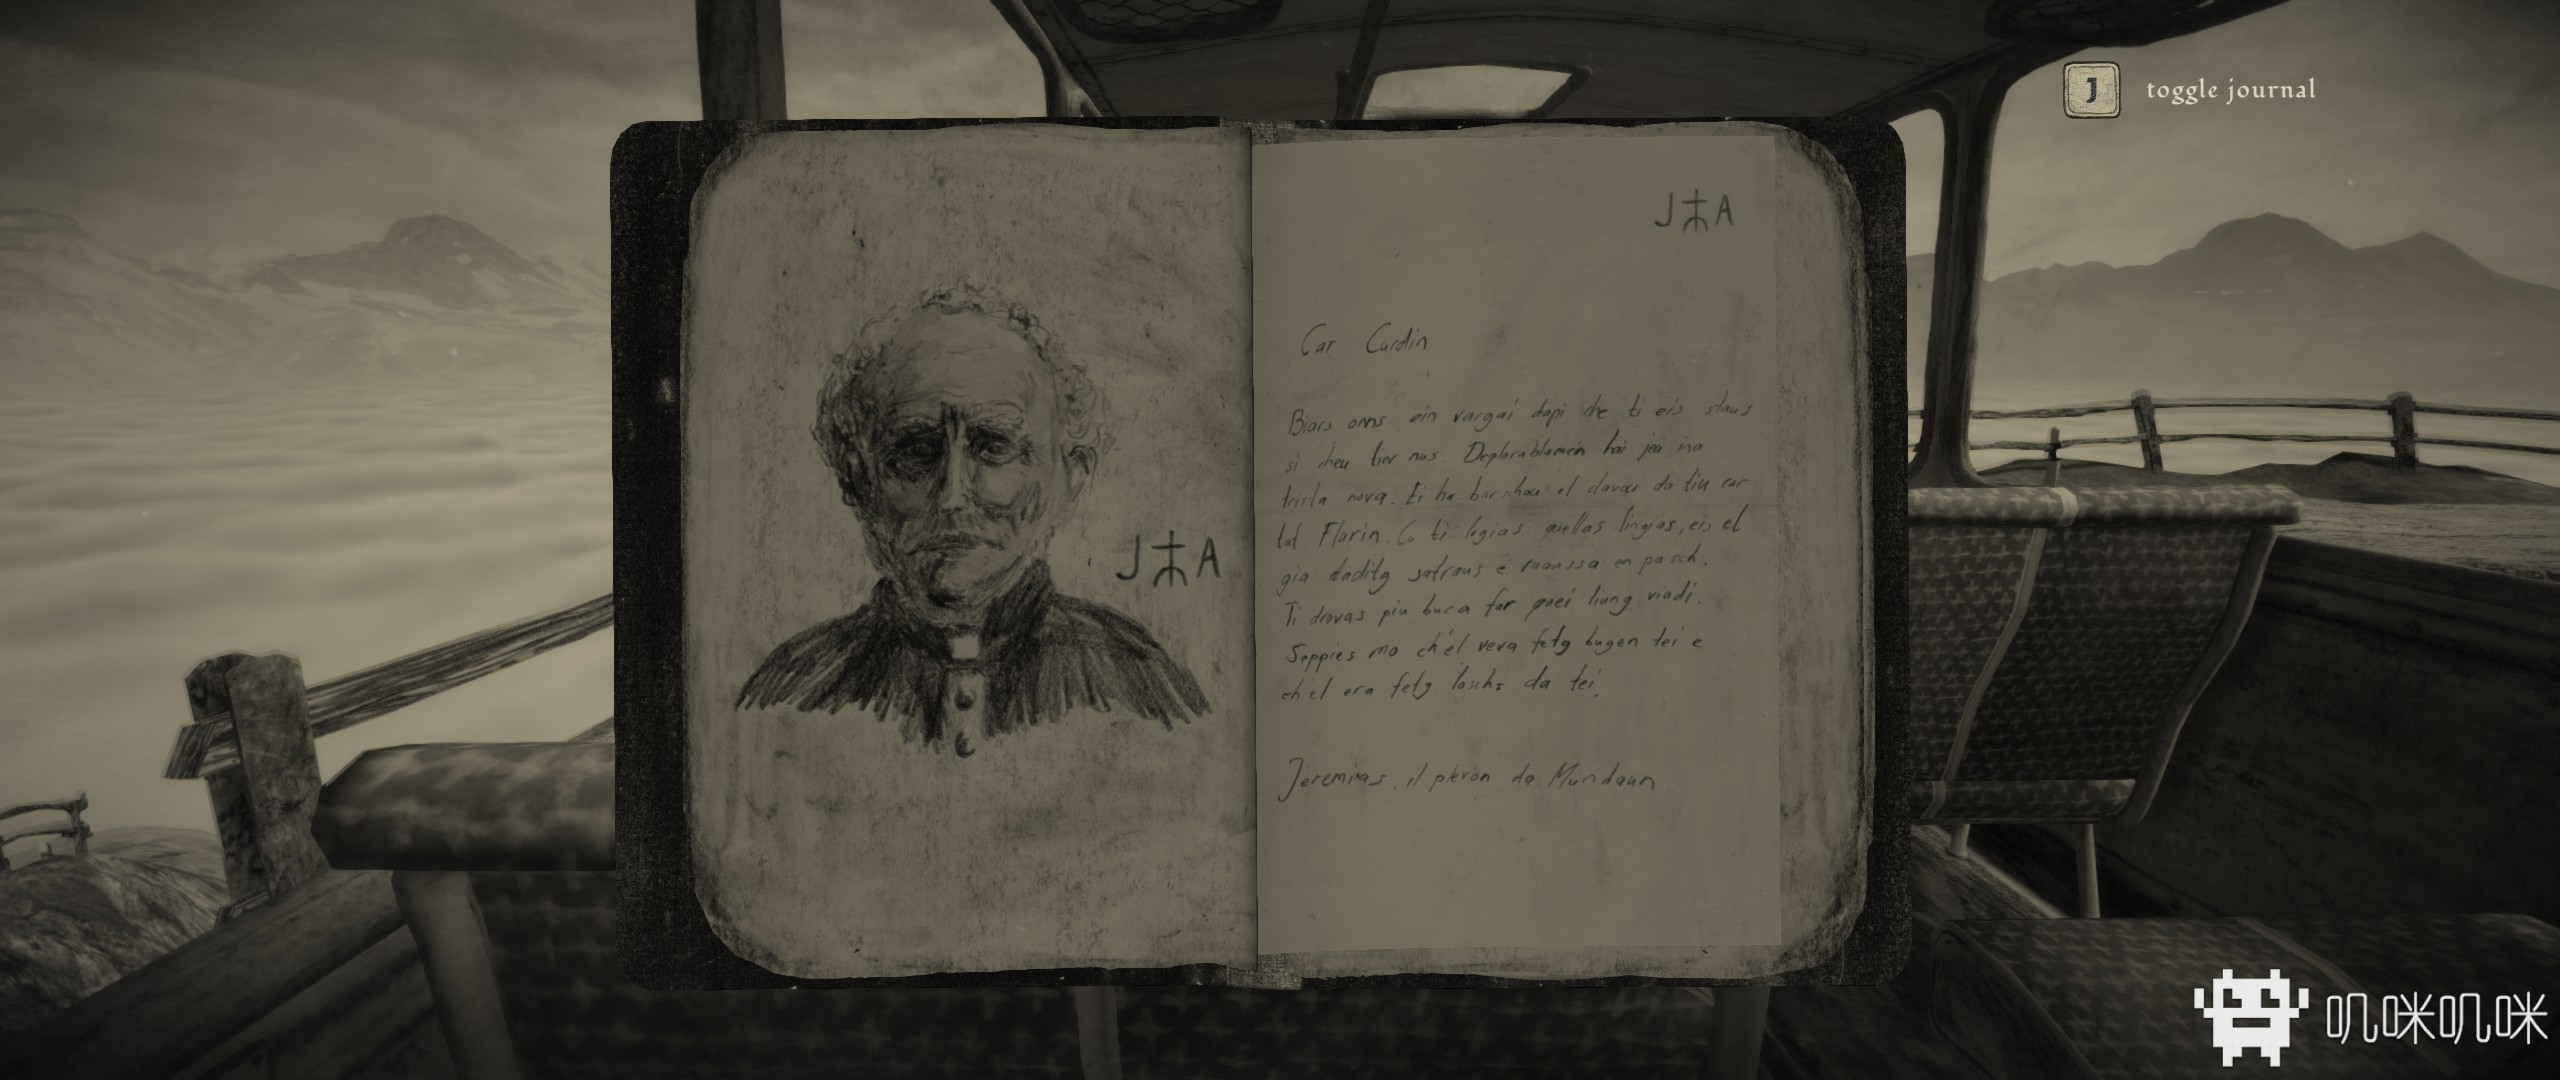 J toggle journal
J A
J A
Car Curdin
Biars onns ein vargai dapi che ti eis staus
si cheu tier nus. Deplorablamein hai jeu ina
trista nova. Ei ha barschau el clavau da tiu car
tat Flurin. Co ti legias quellas lingias, eis el
gia daditg satraus e ruaussa en pasch.
Ti drovas piu buca far quei liung viadi.
Sappies mo ch'el veva fetg bugen tei e
ch'el era fetg loschs da tei.
Jeremias, il plevon da Mundaun
叽咪叽咪